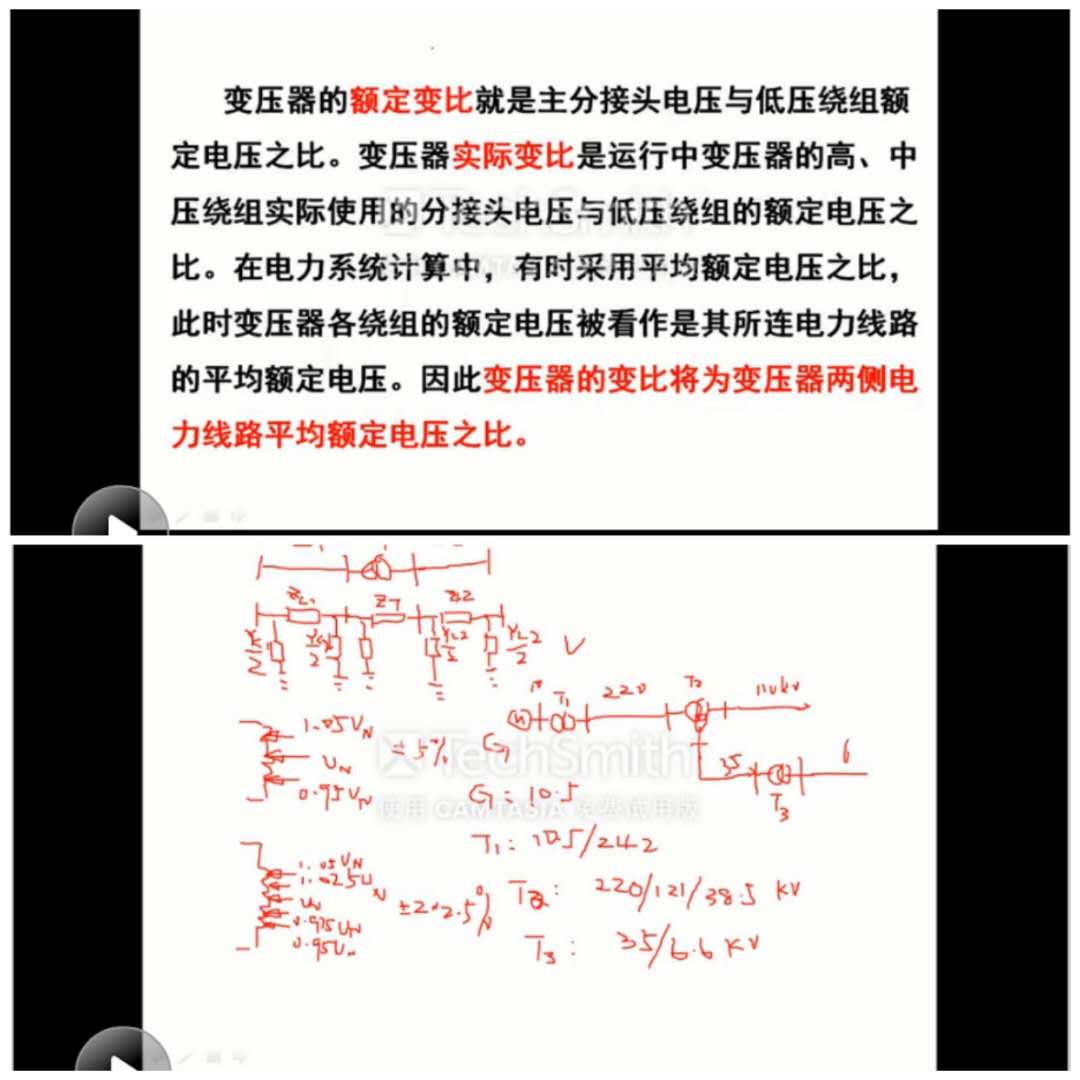 变压器的额定变比就是主分接头电压与低压绕组额
定电压之比。变压器实际变比是运行中变压器的高、中
压绕组实际使用的分接头电压与低压绕组的额定电压之
比。在电力系统计算中，有时采用平均额定电压之比，
此时变压器各绕组的额定电压被看作是其所连电力线路
的平均额定电压。因此变压器的变比将为变压器两侧电
力线路平均额定电压之比。
ZT
YL2/2
YL2/2
T1
220
T2
110kV
1.05UN
UN
0.95UN
±5%
G
TechSmith
使用 CAMTASIA 免费试用版
35
6
T3
G: 10.5
T1: 10.5/242
1.05UN
1.025UN
UN
0.975UN
0.95UN
±2×2.5%
T2: 220/121/38.5 KV
T3: 35/6.6 KV